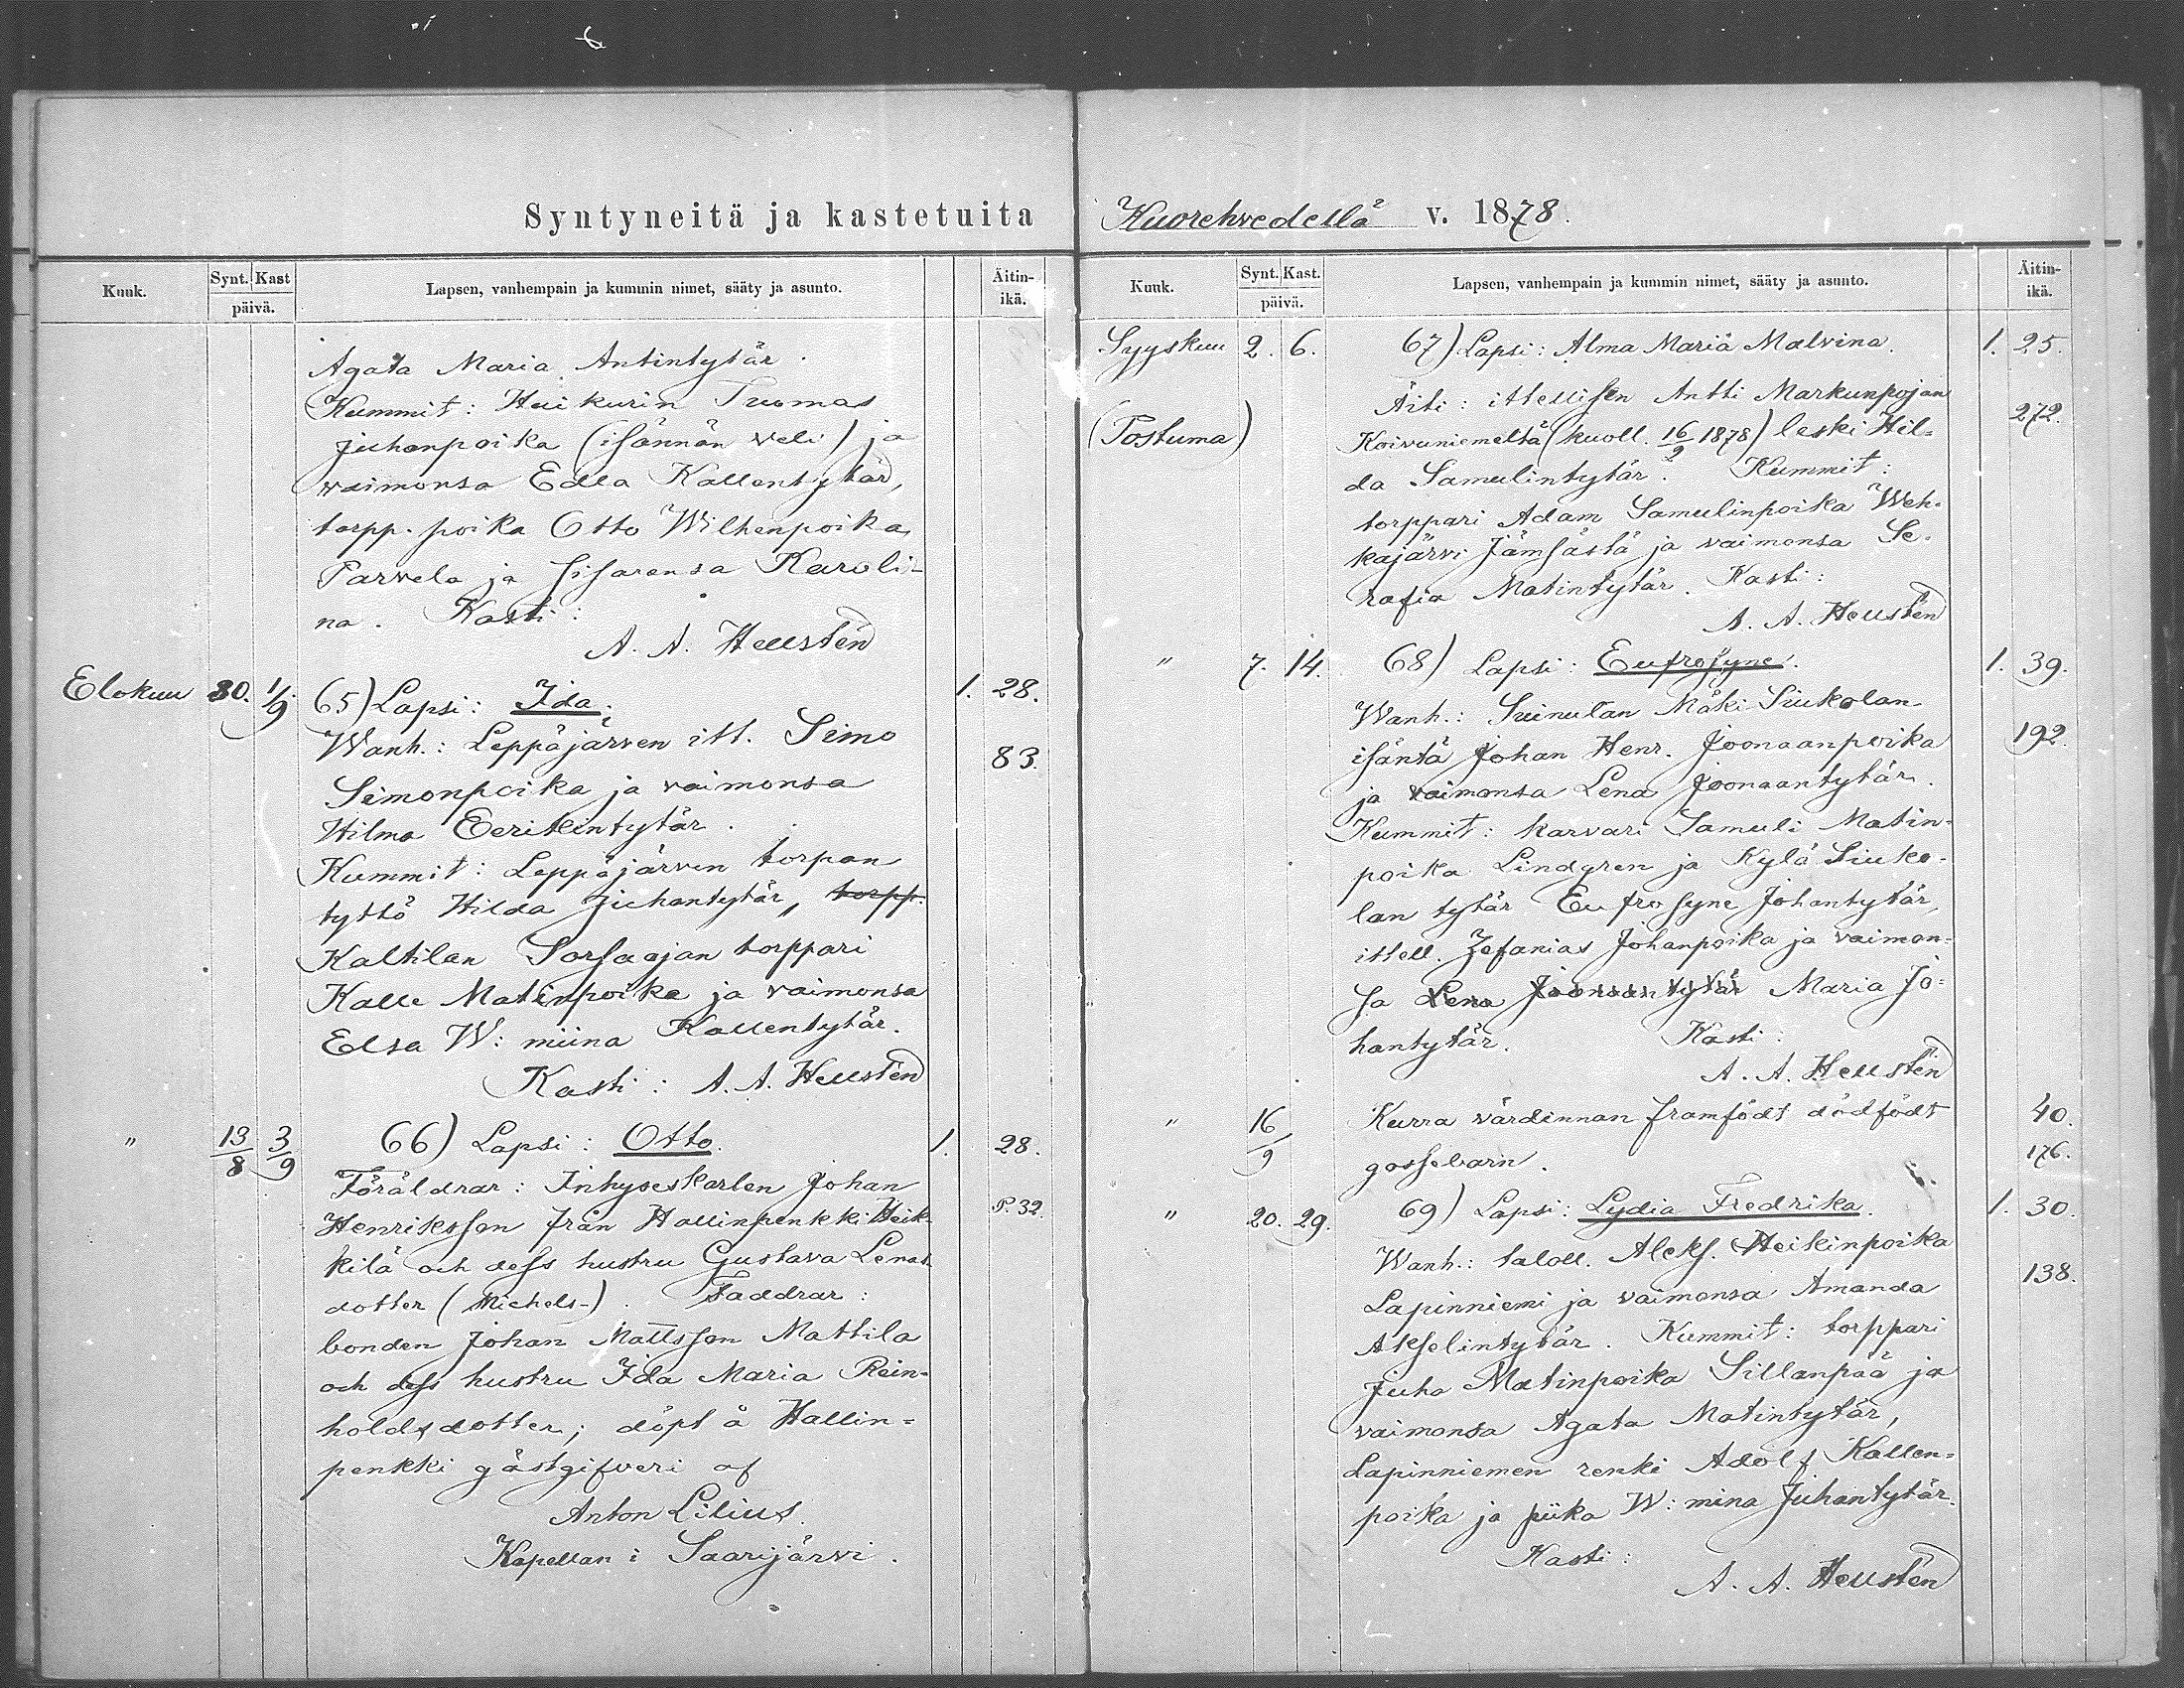 Syntyneitä ja kastetuita
Kuuk.
Synt. Kast
päivä.
Lapsen, vanhempain ja kummin nimet, sääty ja asunto.
Äitin-
ikä.
Agata Maria Antintytär.
Kummit: Heikurin Tuomas
Juhanpoika (isännän veli) ja
vaimonsa Edla Kallentytär,
torpp. poika Otto Wilhenpoika
Parvela ja sisarensa Karoli-
na. Kasti:
A. A. Hellstén
Elokuu 30. 1/9 65) Lapsi: Ida. 1. 28.
Wanh.: Leppäjärven itt. Simo
83.
Simonpoika ja vaimonsa
Hilma Eerikintytär.
Kummit: Leppäjärven torpan
tyttö Hilda Juhantytär, torpp.
Kaltilan Sorsaajan torppari
Kalle Matinpoika ja vaimonsa
Elsa W:miina Kallentytär.
Kasti: A. A. Hellstén
" 13/8 3/9 66) Lapsi: Otto. 1. 28.
Föräldrar: Inhyseskarlen Johan
Henriksson från Hallinpenkki Heik-
P. 32.
kilä och dess hustru Gustava Lenas
dotter (Michels-). Faddrar:
bonden Johan Mattsson Mattila
och dess hustru Ida Maria Rein-
holdsdotter; döpt å Hallin=
penkki gästgifveri af
Anton Lilius.
Kapellan i Saarijärvi.
Kuorehvedellä v. 1878.
Kuuk.
Synt. Kast.
päivä.
Lapsen, vanhempain ja kummin nimet, sääty ja asunto.
Äitin-
ikä.
Syyskuu 2. 6. 67) Lapsi: Alma Maria Malvina. 1. 25.
Äiti: ittellisen Antti Markunpojan
272.
(Postuma) Koivuniemeltä (kuoll. 16/2 1878) leski Hil=
da Samulintytär. Kummit:
torppari Adam Samulinpoika Weh-
kajärvi Jämsästä ja vaimonsa Se-
rafia Matintytär. Kasti:
A. A. Hellstén
" 7. 14. 68) Lapsi: Eufrosyne. 1. 39.
Wanh.: Suinulan Mäki Siukolan
isäntä Johan Henr. Joonaanpoika
192.
ja vaimonsa Lena Joonaantytär.
Kummit: karvari Samuli Matin-
poika Lindgren ja Kylä Siuko-
lan tytär Eufrosyne Johantytär,
ittell. Zefanias Johanpoika ja vaimon=
sa Lena Joonaantytär Maria Jo=
hantytär. Kasti:
A. A. Hellstén
" 16/9 Kurra värdinnan framfödt dödfödt 40.
gossebarn. 176.
" 20. 29. 69) Lapsi: Lydia Fredrika. 1. 30.
Wanh.: taloll. Aleks. Heikinpoika
138.
Lapinniemi ja vaimonsa Amanda
Akselintytär. Kummit: torppari
Juha Matinpoika Sillanpää ja
vaimonsa Agata Matintytär,
Lapinniemen renki Adolf Kallen=
poika ja piika W:mina Juhantytär.
Kasti:
A. A. Hellstén